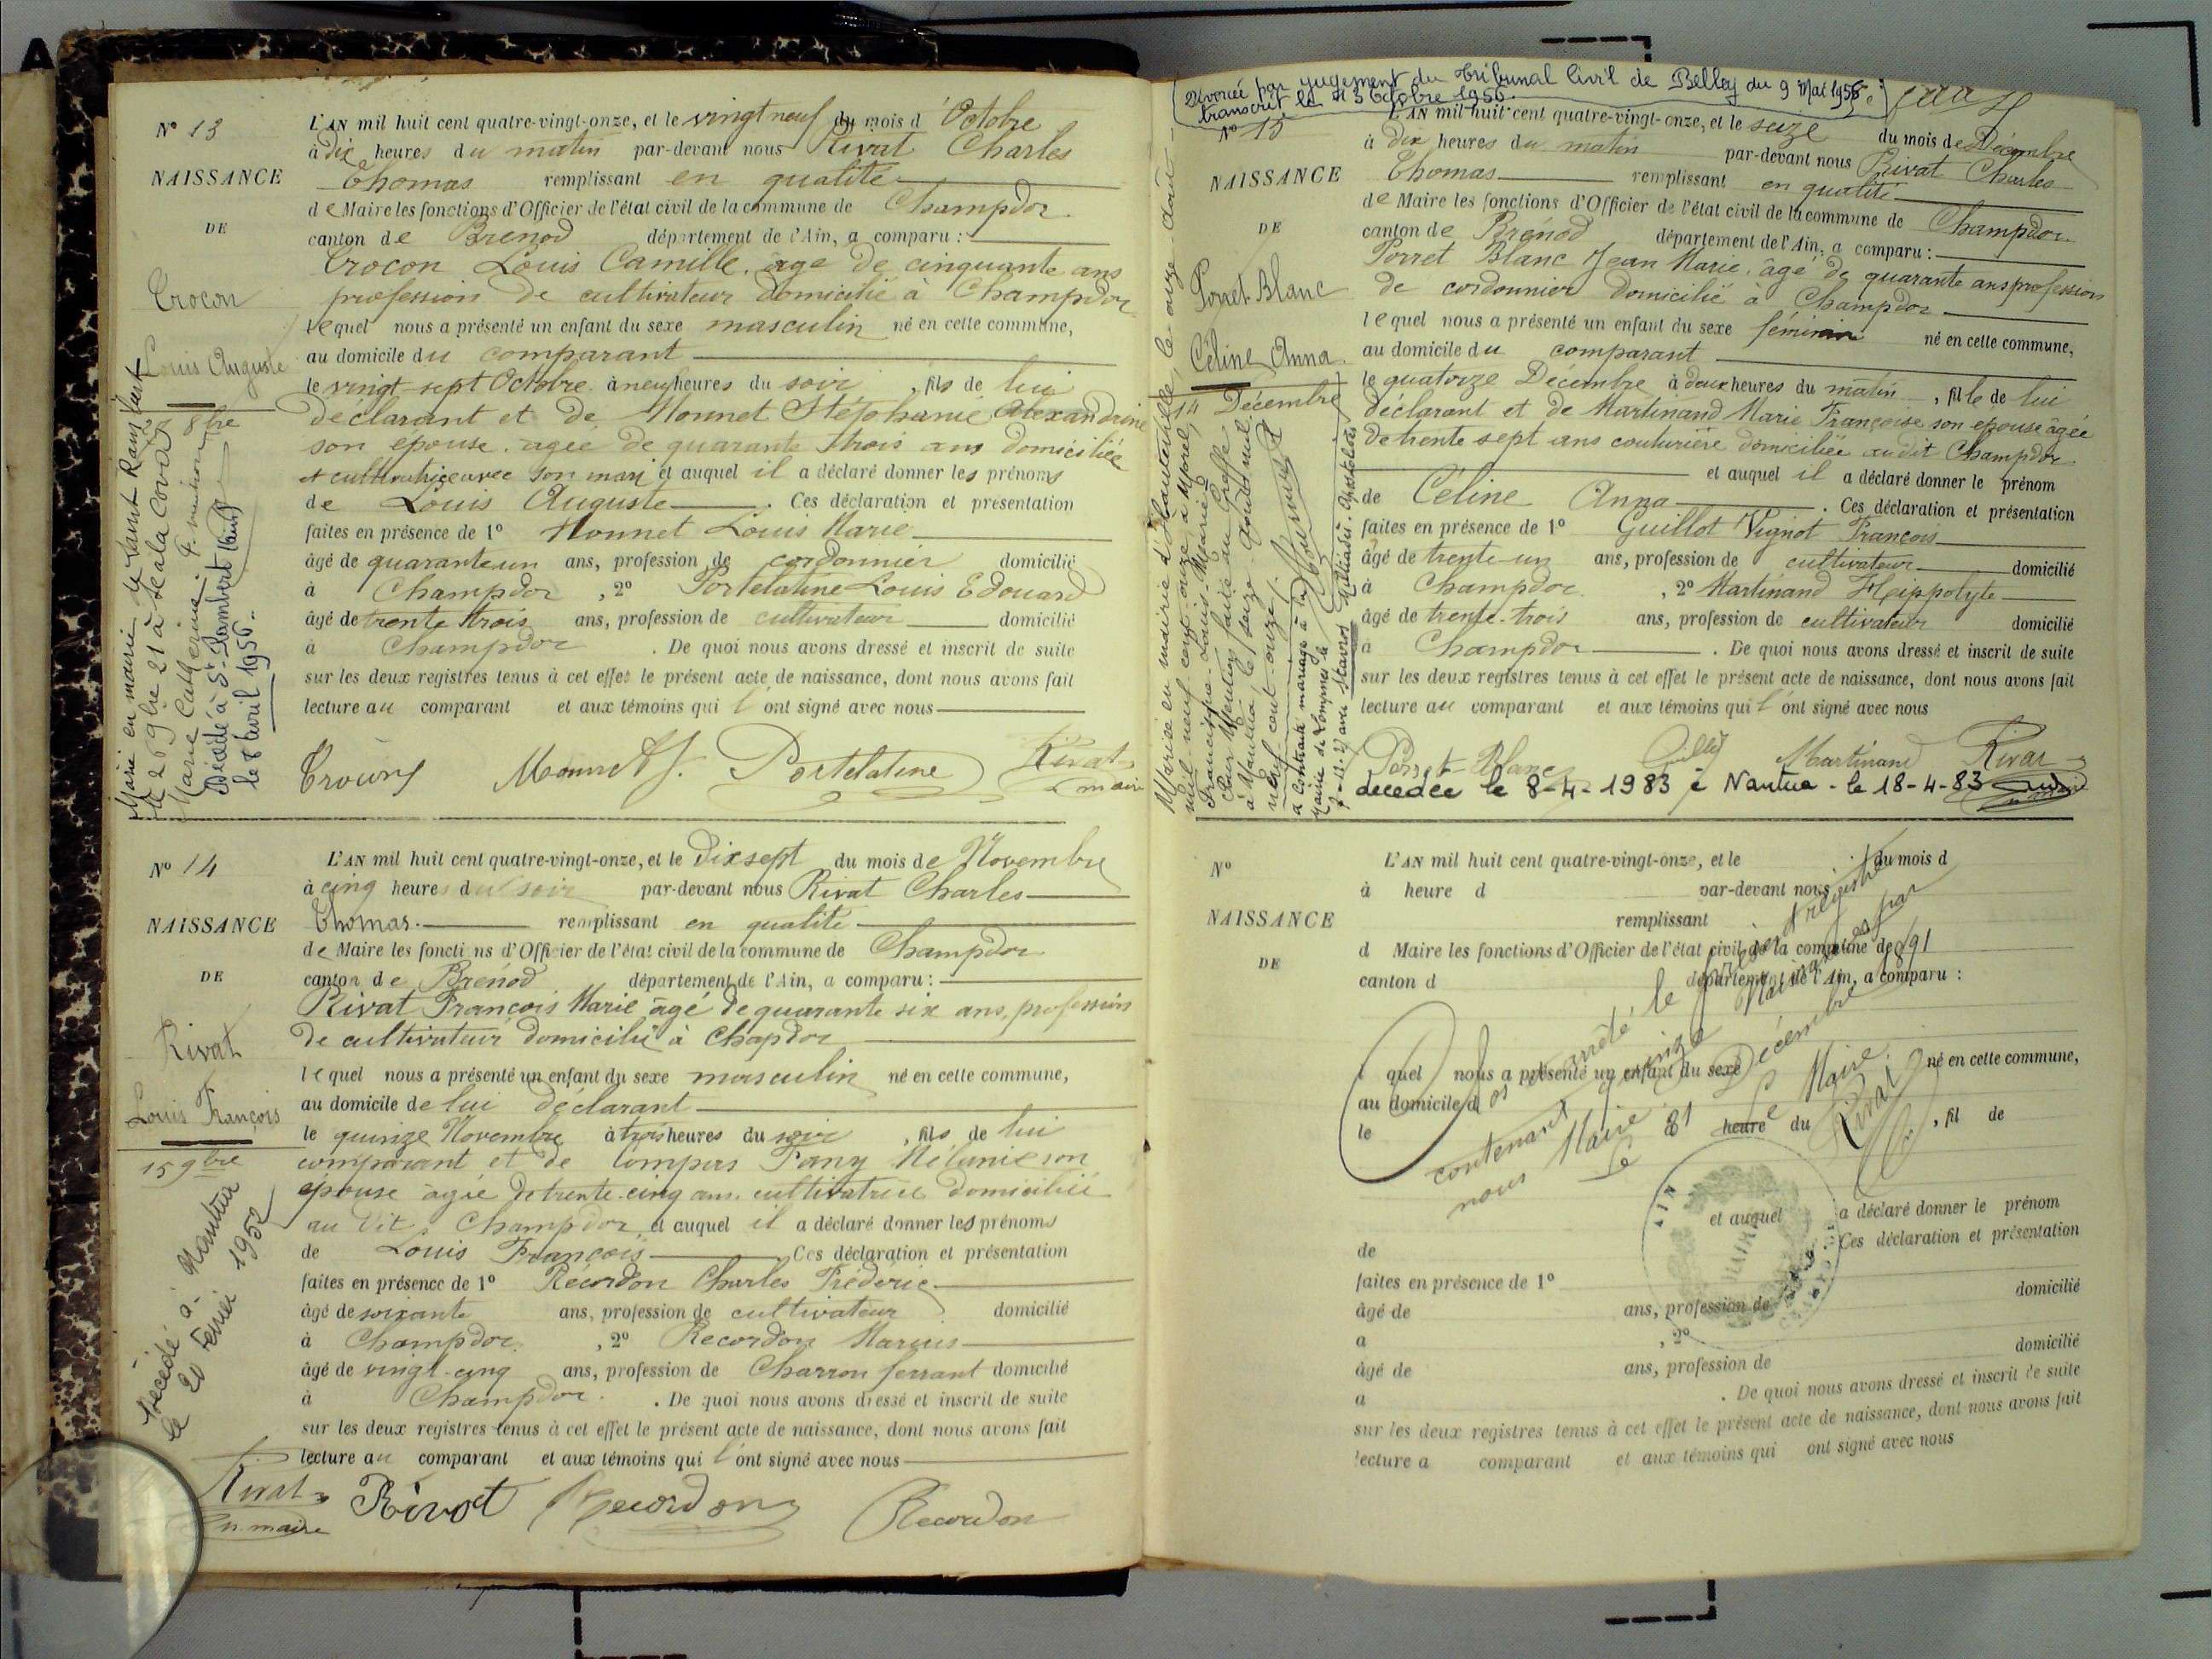 A
Nº 13
NAISSANCE
DE
Crocon
Louis Auguste
8bre
Marié en mairie de Saint Rambert
le 26 9bre 21 à
Marie Catherine
Décédé à St-Rambert
le 8 avril 1956
L'AN mil huit cent quatre-vingt-onze, et le vingt neuf du mois d'Octobre
à dix heures du matin par-devant nous Rivat Charles
Thomas remplissant en qualité
de Maire les fonctions d'Officier de l'état civil de la commune de Champdor
canton de Brenod département de l'Ain, a comparu :
Crocon Louis Camille, âgé de cinquante ans
profession de cultivateur domicilié à Champdor
lequel nous a présenté un enfant du sexe masculin né en cette commune,
au domicile du comparant
le vingt sept Octobre à neuf heures du soir, fils de lui
déclarant et de Monnet Stéphanie Alexandrine
son épouse agée de quarante trois ans domiciliée
et cultivatrice avec son mari et auquel il a déclaré donner les prénoms
de Louis Auguste. Ces déclaration et présentation
faites en présence de 1º Monnet Louis Marie
âgé de quarante un ans, profession de cordonnier domicilié
à Champdor, 2º Portelatine Louis Edouard
âgé de trente trois ans, profession de cultivateur domicilié
à Champdor. De quoi nous avons dressé et inscrit de suite
sur les deux registres tenus à cet effet le présent acte de naissance, dont nous avons fait
lecture au comparant et aux témoins qui l'ont signé avec nous
Monnet Portelatine Rivat
maire
Nº 14
NAISSANCE
DE
Rivat
Louis François
15 9bre
Décédé à Nantua
le 20 Février 1952
L'AN mil huit cent quatre-vingt-onze, et le Dix sept du mois de Novembre
à cinq heures du soir par-devant nous Rivat Charles
Thomas. remplissant en qualité
de Maire les fonctions d'Officier de l'état civil de la commune de Champdor
canton de Brénod département de l'Ain, a comparu :
Rivat François Marie âgé de quarante six ans, profession
de cultivateur domicilié à Chapdor
lequel nous a présenté un enfant du sexe masculin né en cette commune,
au domicile de lui déclarant
le quinze Novembre à trois heures du soir, fils de lui
comparant et de Compas Fany Mélanie son
épouse âgée de trente-cinq ans. cultivatrice domiciliée
au dit Champdor, et auquel il a déclaré donner les prénoms
de Louis François Ces déclaration et présentation
faites en présence de 1º Récordon Charles Fréderic
âgé de soixante ans, profession de cultivateur domicilié
à Champdor, 2º Recordon Marius
âgé de vingt-cinq ans, profession de Charron ferrant domicilié
à Champdor. De quoi nous avons dressé et inscrit de suite
sur les deux registres tenus à cet effet le présent acte de naissance, dont nous avons fait
lecture au comparant et aux témoins qui l'ont signé avec nous
Rivat
maire
Rivat Recordon Recordon
Divorcée par jugement du Tribunal Civil de Belley du 9 Mai 1956
transcrit le 13 Octobre 1956
Nº 15
NAISSANCE
DE
Porret-Blanc
Céline Anna
14 Décembre
Mariée en mairie d'Hauteville, le onze Août
mil neuf cent onze, à Morel,
Francisque-Louis-Marie
Pour Mention faite au Greffe
à Nantua le seize Août mil
neuf cent onze
a contracté mariage à la
Mairie de Lompnes le
avec Stavros Miltiadis
L'AN mil huit cent quatre-vingt-onze, et le seize du mois de Décembre
à dix heures du matin par-devant nous Rivat Charles
Thomas remplissant en qualité
de Maire les fonctions d'Officier de l'état civil de la commune de Champdor
canton de Brénod département de l'Ain, a comparu :
Porret Blanc Jean Marie, âgé de quarante ans profession
de cordonnier domicilié à Champdor
lequel nous a présenté un enfant du sexe féminin né en cette commune,
au domicile du comparant
le quatorze Décembre à deux heures du matin, fille de lui
déclarant et de Martinand Marie Françoise son épouse agée
de trente sept ans couturière domiciliée au dit Champdor
et auquel il a déclaré donner le prénom
de Céline Anna. Ces déclaration et présentation
faites en présence de 1º Guillot Vignot François
âgé de trente-un ans, profession de cultivateur domicilié
à Champdor, 2º Martinand Hippolyte
âgé de trente-trois ans, profession de cultivateur domicilié
à Champdor. De quoi nous avons dressé et inscrit de suite
sur les deux registres tenus à cet effet le présent acte de naissance, dont nous avons fait
lecture au comparant et aux témoins qui l'ont signé avec nous
Porret-Blanc Martinand Rivat
décédée le 8-4-1983 à Nantua - le 18-4-83
Nº
NAISSANCE
DE
L'AN mil huit cent quatre-vingt-onze, et le du mois d
à heure d par-devant nous
remplissant
d Maire les fonctions d'Officier de l'état civil de la commune de
canton d département de l'Ain, a comparu :
l quel nous a présenté un enfant du sexe né en cette commune,
au domicile d
le heure du , fil de
et auquel a déclaré donner le prénom
de Ces déclaration et présentation
faites en présence de 1º domicilié
âgé de ans, profession de
a , 2º domicilié
âgé de ans, profession de
a . De quoi nous avons dressé et inscrit de suite
sur les deux registres tenus à cet effet le présent acte de naissance, dont nous avons fait
lecture a comparant et aux témoins qui ont signé avec nous
Clos et arrêté le présent registre
contenant quinze Naissances par
nous Maire Le 31 Décembre 1891
Le Maire
Rivat
AIN
MAIRIE